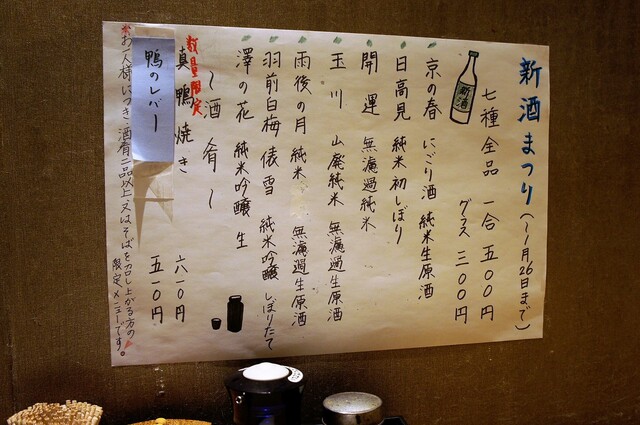 新酒まつり(〜1月26日まで)
新酒
七種全品 一合 五〇〇円
グラス 三〇〇円
京の春 にごり酒 純米生原酒
日高見 純米初しぼり
開運 無濾過純米
玉川 山廃純米 無濾過生原酒
雨後の月 純米 無濾過生原酒
羽前白梅 俵雪 純米吟醸 しぼりたて
澤の花 純米吟醸 生
〜酒肴〜
数量限定
真鴨焼き 六一〇円
鴨のレバー 五一〇円
※お一人様につき、酒肴二品以上又はそばを召し上がる方の限定メニューです。